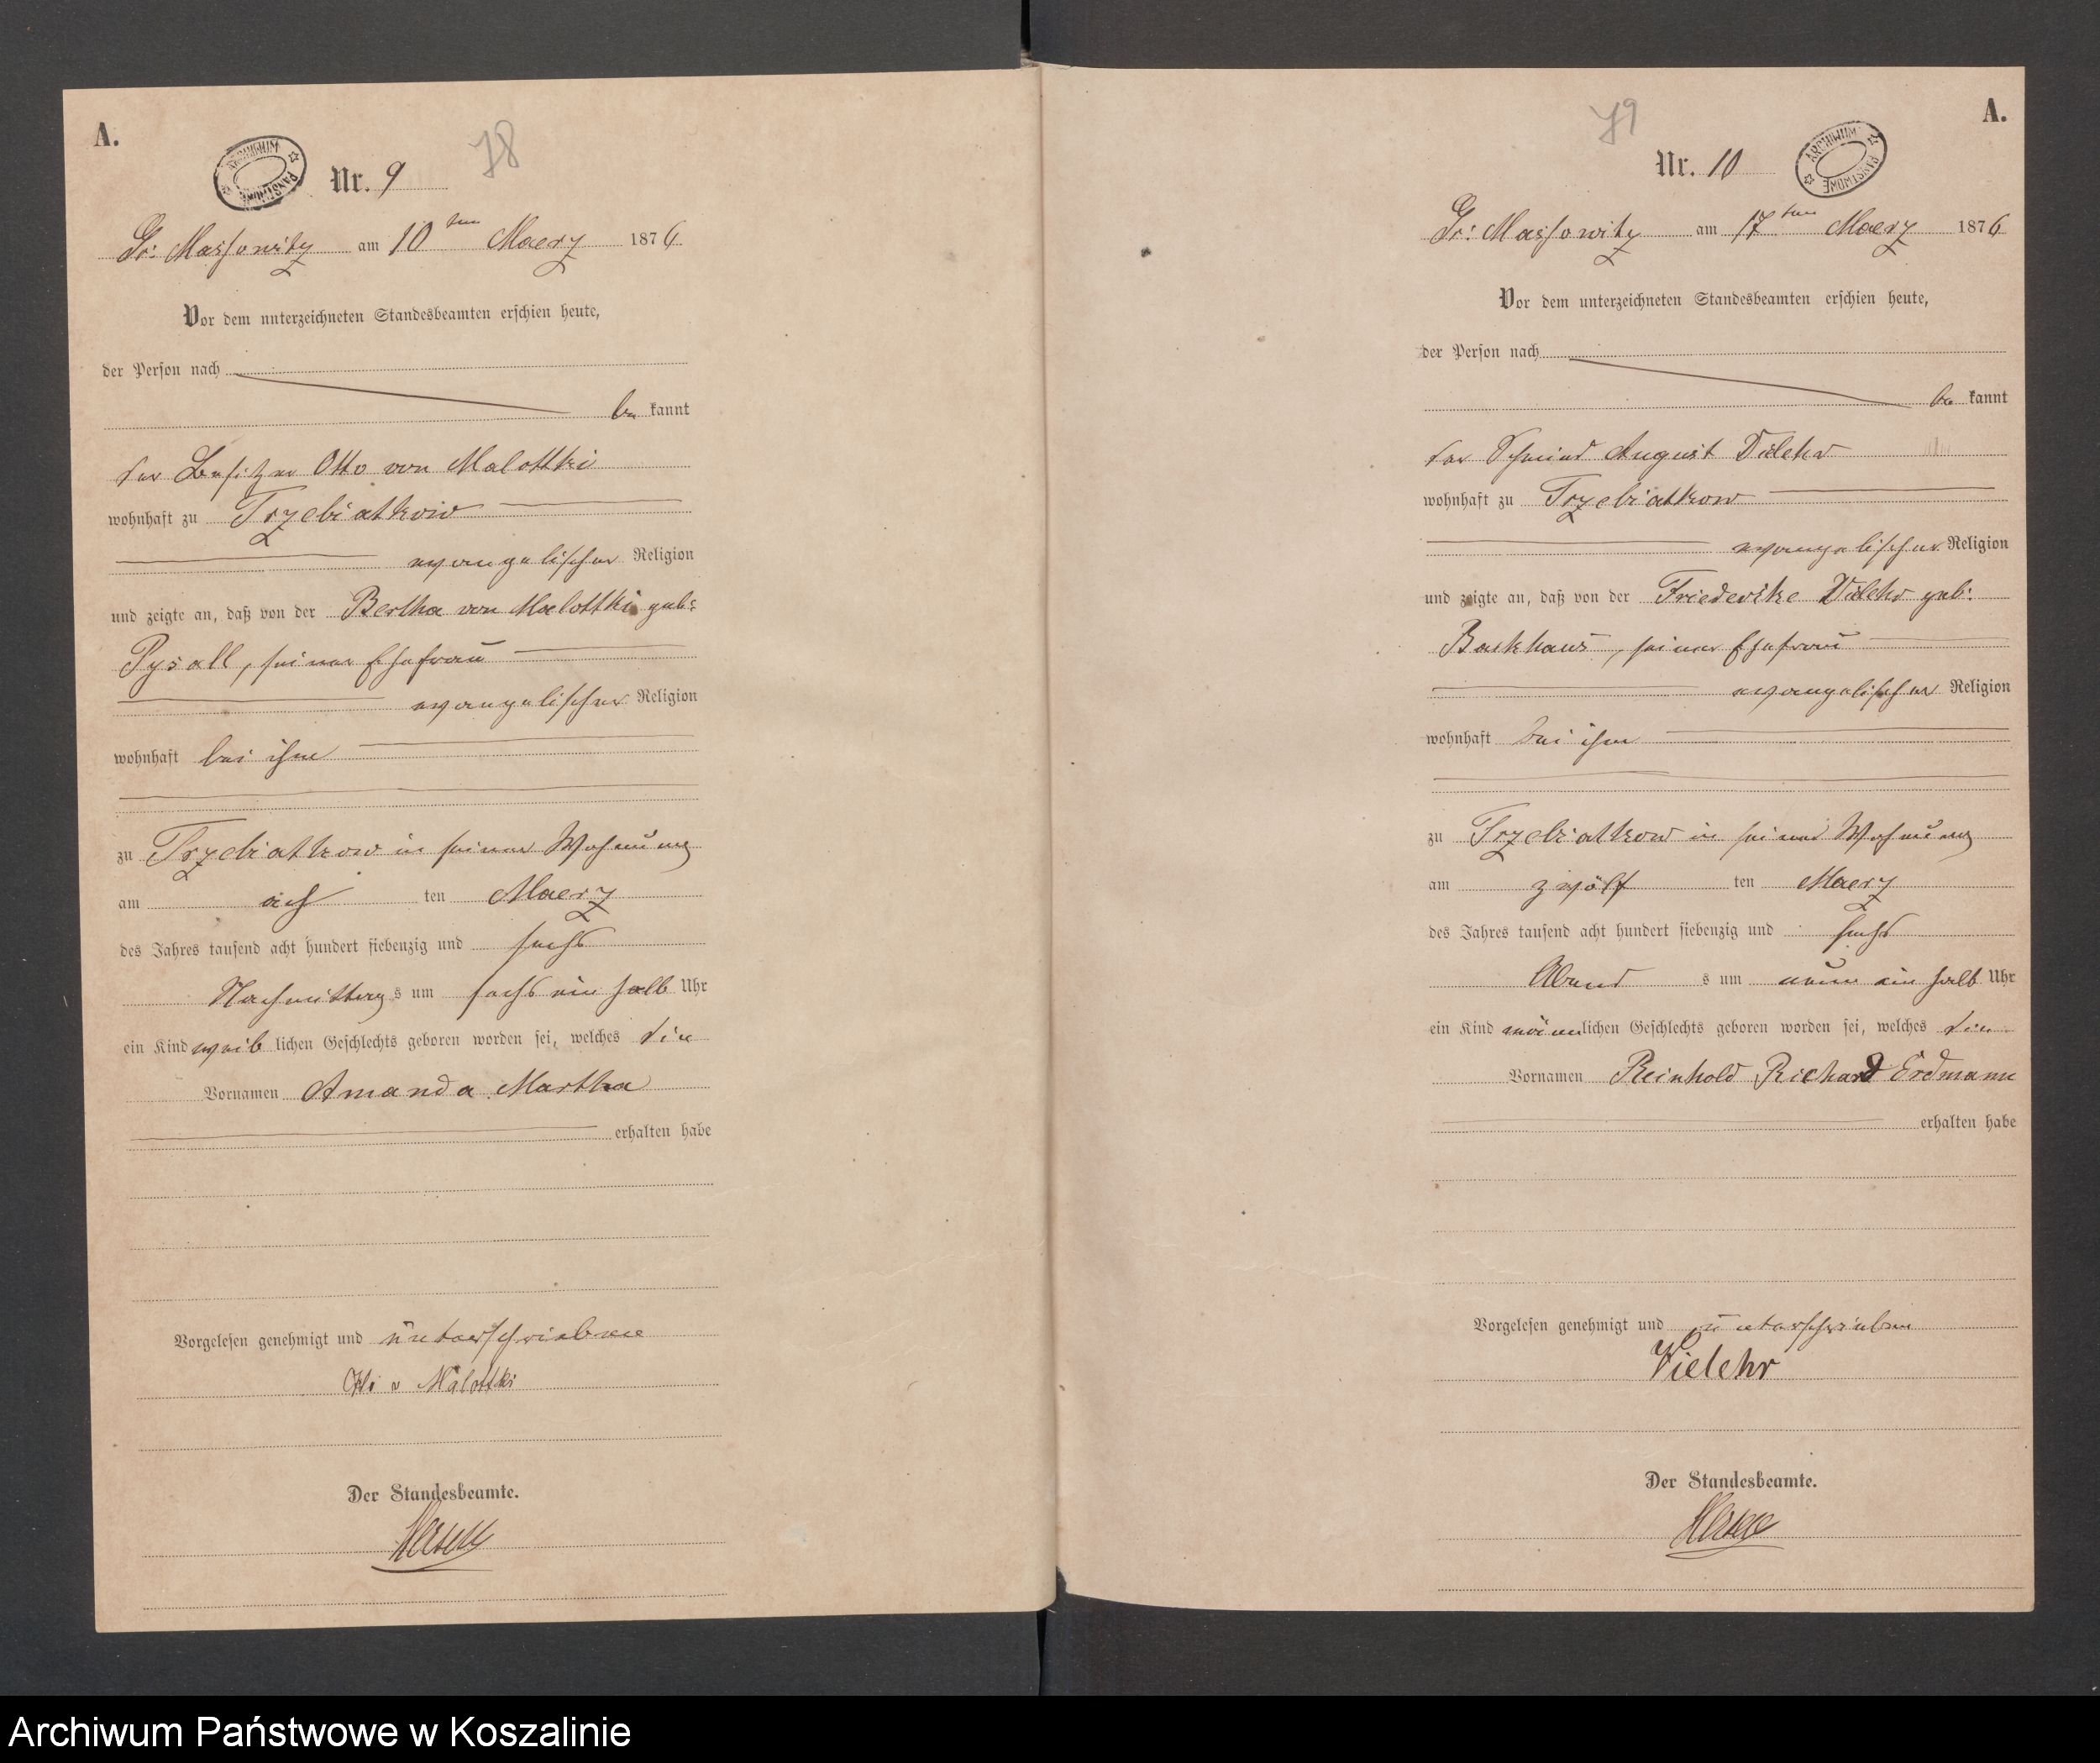 A.
ARCHIWUM PAŃSTWOWE
78
Nr. 9
Gr: Massowitz am 10 ten Maerz 1876.
Vor dem unterzeichneten Standesbeamten erschien heute,
der Person nach
be kannt
der Besitzer Otto von Malottki
wohnhaft zu Trzebiatkow
evangelischer Religion
und zeigte an, daß von der Bertha von Malottki geb:
Pysall, seiner Ehefrau
evangelischer Religion
wohnhaft bei ihm
zu Trzebiatkow in seiner Wohnung
am acht ten Maerz
des Jahres tausend acht hundert siebenzig und sechs
Nachmittag s um sechs ein halb Uhr
ein Kind weib lichen Geschlechts geboren worden sei, welches die
Vornamen Amanda Martha
erhalten habe
Vorgelesen genehmigt und unterschrieben
v Malottki
Der Standesbeamte.
A.
79
ARCHIWUM PAŃSTWOWE
Nr. 10
Gr: Massowitz am 17 ten Maerz 1876
Vor dem unterzeichneten Standesbeamten erschien heute,
der Person nach
be kannt
der Schmied August Vielehr
wohnhaft zu Trzebiatkow
evangelischer Religion
und zeigte an, daß von der Friederike Vielehr geb:
Backhaus, seiner Ehefrau
evangelischer Religion
wohnhaft bei ihm
zu Trzebiatkow in seiner Wohnung
am zwölf ten Maerz
des Jahres tausend acht hundert siebenzig und sechs
Abend s um neun ein halb Uhr
ein Kind männlichen Geschlechts geboren worden sei, welches die
Vornamen Reinhold Richard Erdmann
erhalten habe
Vorgelesen genehmigt und unterschrieben
Vielehr
Der Standesbeamte.
Archiwum Państwowe w Koszalinie